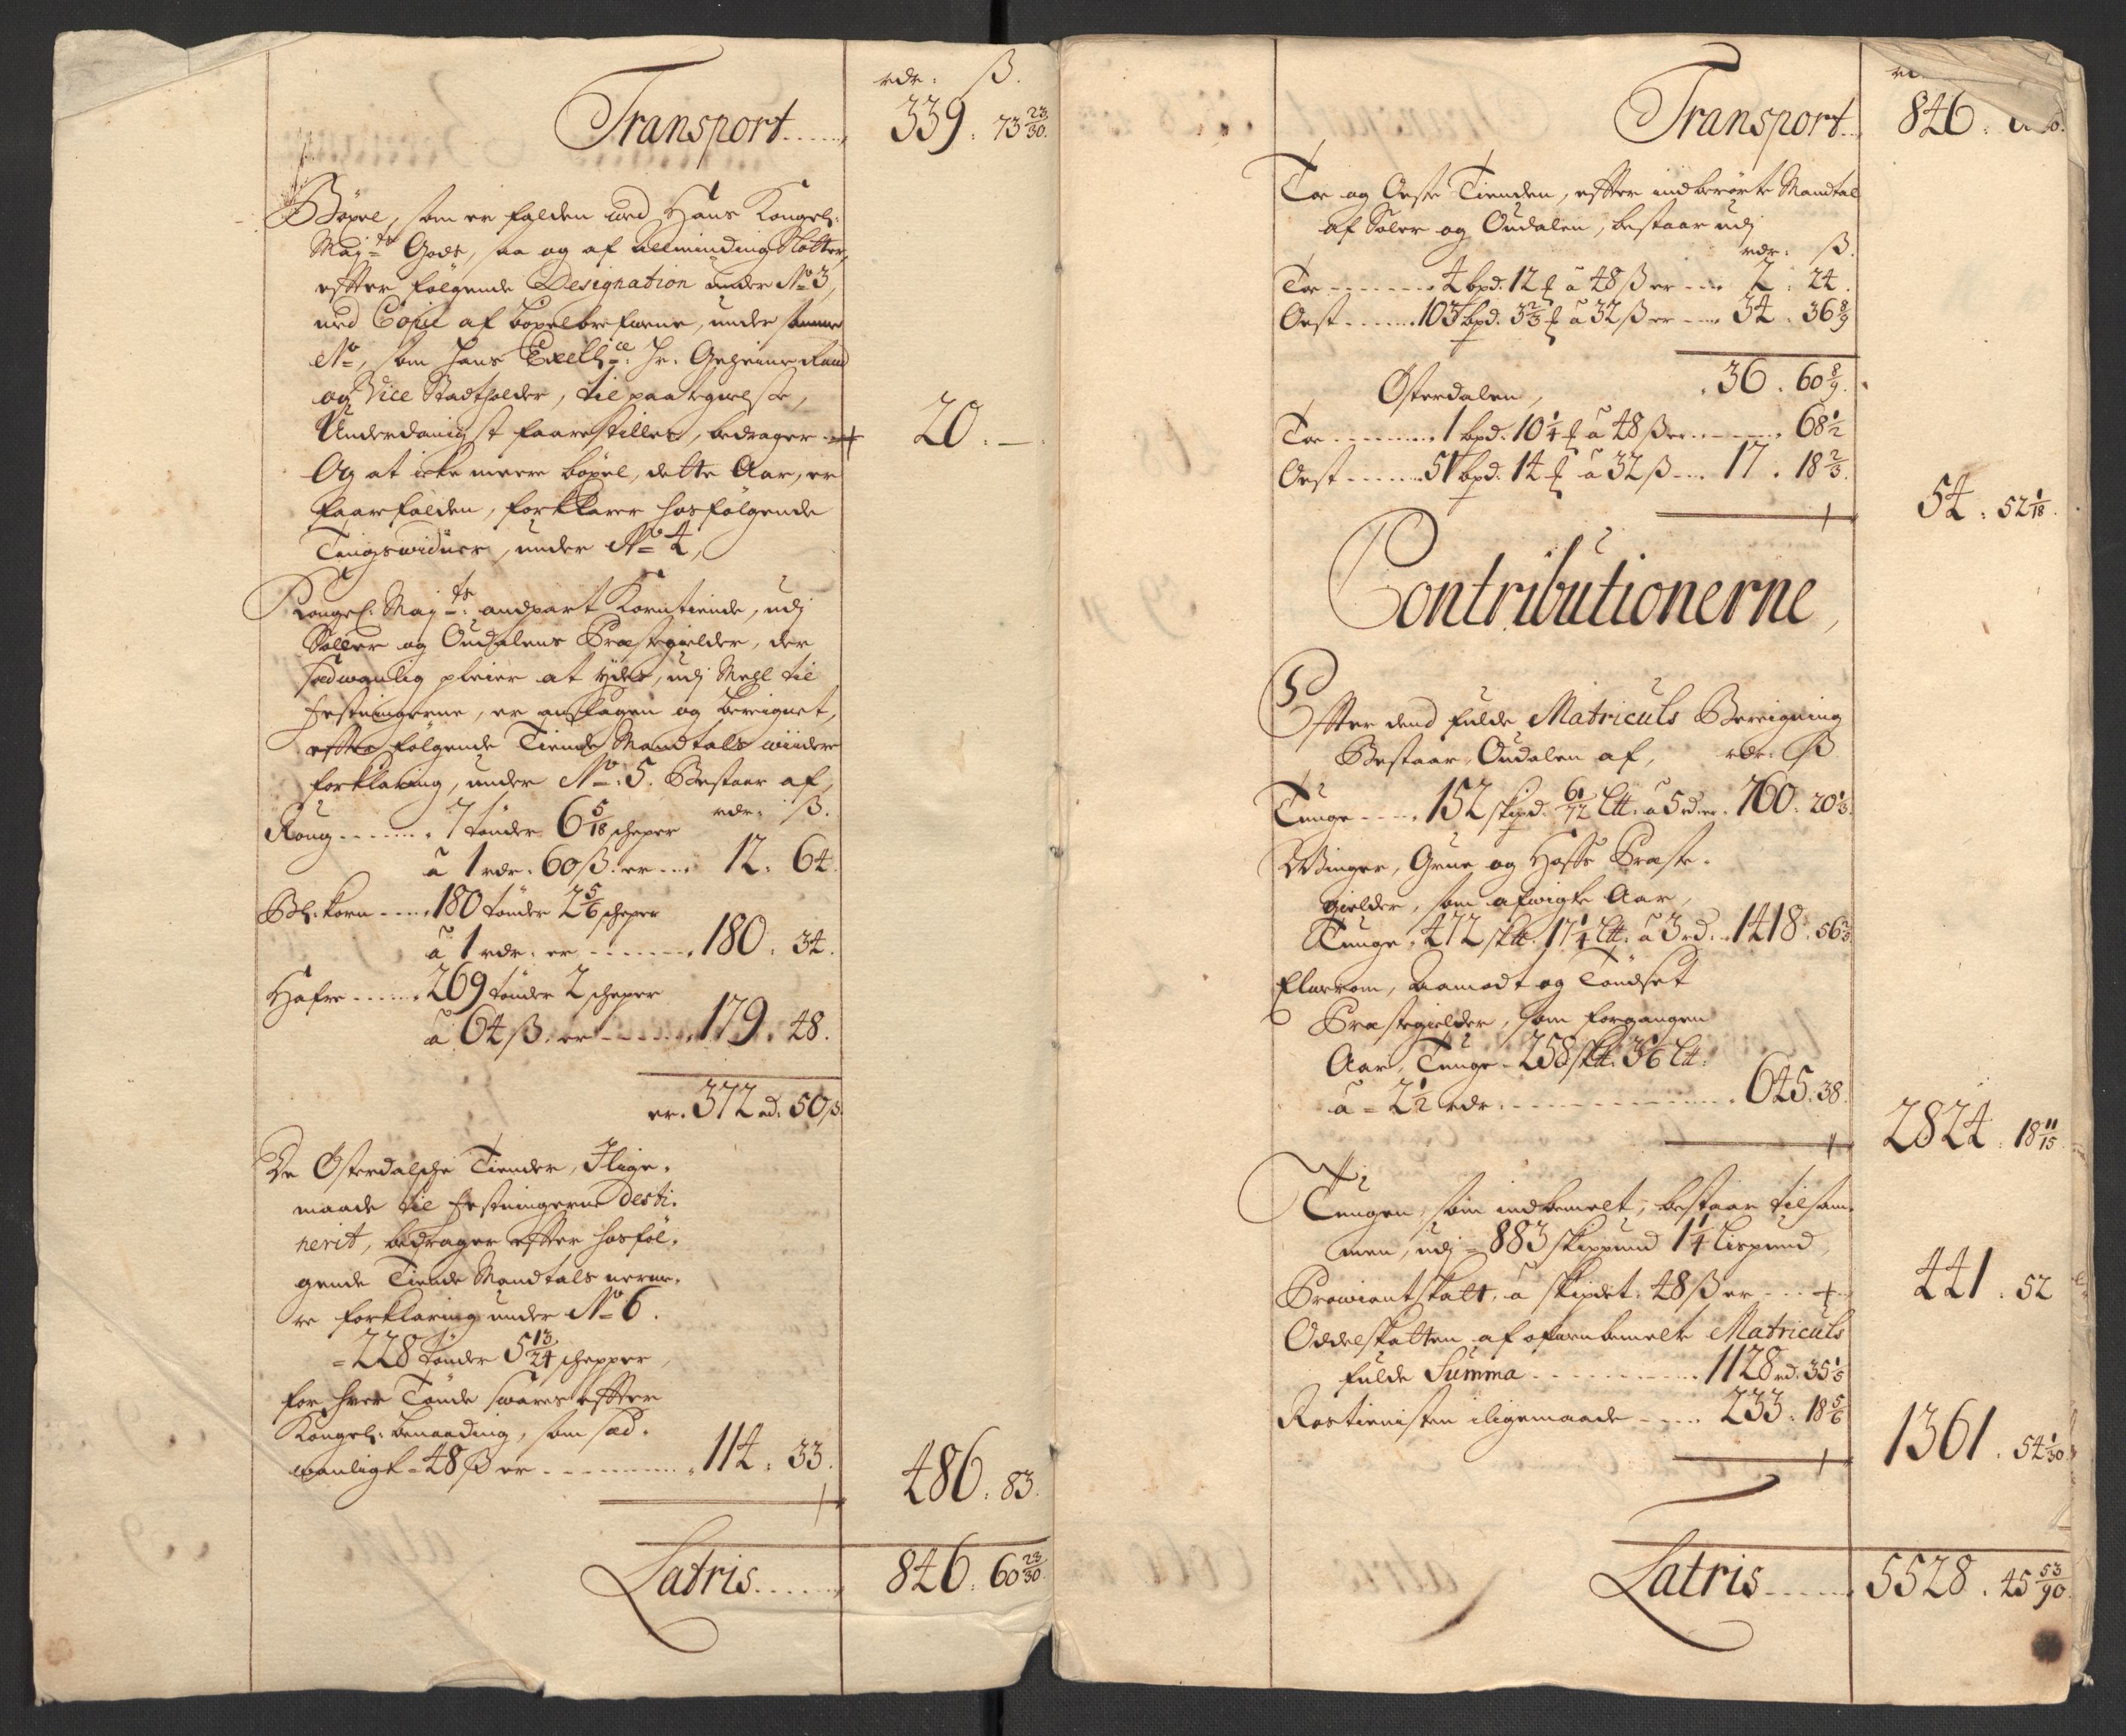 rdr: ß.
Transport...... 339. 73 23/30.
Böxel, som er falden ved Hans Kongel:
Maj:ts Gods, saa og af Allminding Slotter,
efter følgende Designation under No 3,
med Copie af böxelbrefvene, under samme
No, som hans Excell:ce Hr. Geheime Raad
og Vice Stadtholder, til paategnelse,
Underdanigst faarestilles, bedrager 20. —.
Og at icke meere böxel, dette Aar, er
faarfalden, forklarer hosfølgende
Tingswidner, under No 4,
Kongel: Maj:ts andpart Korntiende, udj
Soller og Oudalens Præstegielder, der
sædwanlig pleier at ydes, udj Mehl til
festningerne, er anslagen og bereignet,
efter følgende Tiende Mandtals widere
forklaring, under No: 5. Bestaar af,
rdr. ß.
Roug ....... 7 tönder 6 5/18 scheper
a 1 rdr. 60 ß. er .... 12. 64.
Bl: korn .... 180 tönder 2 5/6 scheper
a 1 rdr. er ....... 180. 34.
Hafre ...... 269 tönder 2 scheper
a 64 ß. er ...... 179. 48.
er. 372 rd. 50 ß.
De Österdalsche Tiender, Ilige-
maade til festningerne desti-
nerit, bedrager efter hosföl-
gende Tiende Mandtals nerme-
re forklaring under No 6.
= 228 tönder 5 13/24 schepper,
for hver Tönde swares efter
Kongel: benaading, som sæd-
wanligt = 48 ß er ......... 114. 33.
486. 83.
Latris...... 846. 60 23/30.
Transport... 846.
Toe og Oste Tienden, efter indberörte Mandtal
af Soler og Oudalen, bestaar udj
rdr. ß.
Toe ........ 4 bpd. 12 a 48 ß er .... 2. 24.
Ost ...... 103 bpd. 3 2/3 a 32 ß er .... 34. 36 8/9
36. 60 8/9.
Österdalen,
Toe ........ 1 bpd. 10 1/4 a 48 ß er ...... 68 1/2
Ost ...... 51 bpd. 14 a 32 ß .... 17. 18 2/3.
54. 52 1/18.
Contributionerne,
Efter dend fulde Matriculs Bereigning
Bestaar Oudalen af, rdr: ß
Tunge .... 152 skipd. 61/72 Ltt. a 5 rd. er. 760. 20 1/3.
Winger, Grue og Hoffs Præste-
gielder, som afwigte Aar,
Tunge. 472 sktt. 17 1/4 Ltt. a 3 rd. . 1418. 56 2/5
Elverom, Aamodt og Töndset
Præstegielder, som forgangen
Aar, Tunge - 258 sktt. 3 1/6 Ltt:
a = 2 1/2 rdr. .............. 645. 38.
2824. 18 11/15.
Tungen, som indbemelt, bestaar tilsam-
men, udj = 883 skippund 1 1/4 Lispund,
Prowiantskatt, a skipdt: 48 ß er .... 441. 52
Oddelskatten af ofvenbemelte Matriculs
fulde Summa .......... 1128 rd. 35 1/5
Rostienisten iligemaade ..... 233. 18 5/6
1361. 54 1/30.
Latris...... 5528. 45 53/90.